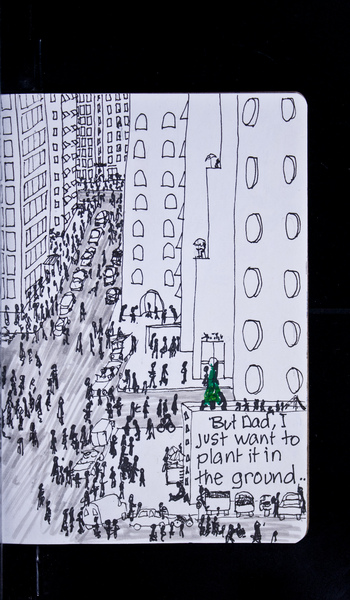 But Dad, I
just want to
plant it in
the ground..